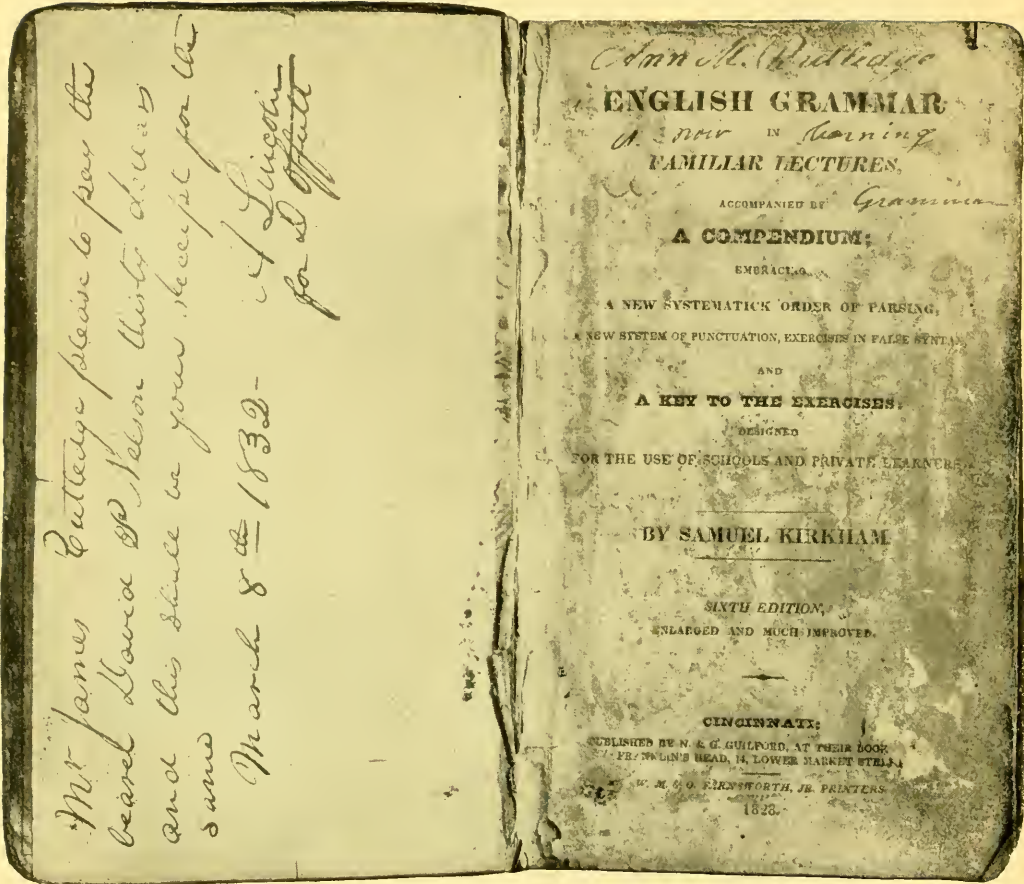 Mr James Rutledge please to pay the
bearer David P Nelson thirty dollars
and this shall be your receipt for the
same
March 8th 1832-
A Lincoln
for D Offutt
Ann M. Rutledge
ENGLISH GRAMMAR
is now IN learning
FAMILIAR LECTURES,
ACCOMPANIED BY Grammar
A COMPENDIUM;
EMBRACING
A NEW SYSTEMATICK ORDER OF PARSING,
A NEW SYSTEM OF PUNCTUATION, EXERCISES IN FALSE SYNTAX,
AND
A KEY TO THE EXERCISES:
DESIGNED
FOR THE USE OF SCHOOLS AND PRIVATE LEARNERS.
BY SAMUEL KIRKHAM
SIXTH EDITION,
ENLARGED AND MUCH IMPROVED.
CINCINNATI:
PUBLISHED BY N. & G. GUILFORD, AT THEIR BOOK
FRANKLIN'S HEAD, 14, LOWER MARKET STREET
W. M. & O. FARNSWORTH, JR. PRINTERS
1828.